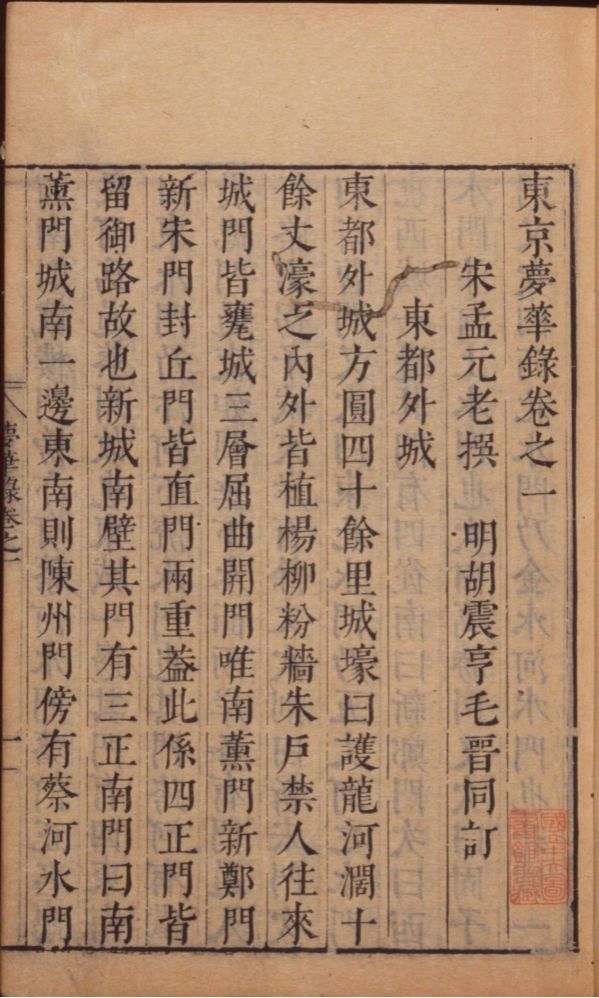 東京夢華錄卷之一
宋孟元老撰　明胡震亨毛晉同訂
東都外城
東都外城方圓四十餘里城壕曰護龍河濶十
餘丈濠之內外皆植楊柳粉牆朱戶禁人往來
城門皆甕城三層屈曲開門唯南薰門新鄭門
新宋門封丘門皆直門兩重葢此係四正門皆
留御路故也新城南壁其門有三正南門曰南
薰門城南一邊東南則陳州門傍有蔡河水門
夢華錄卷之一
一